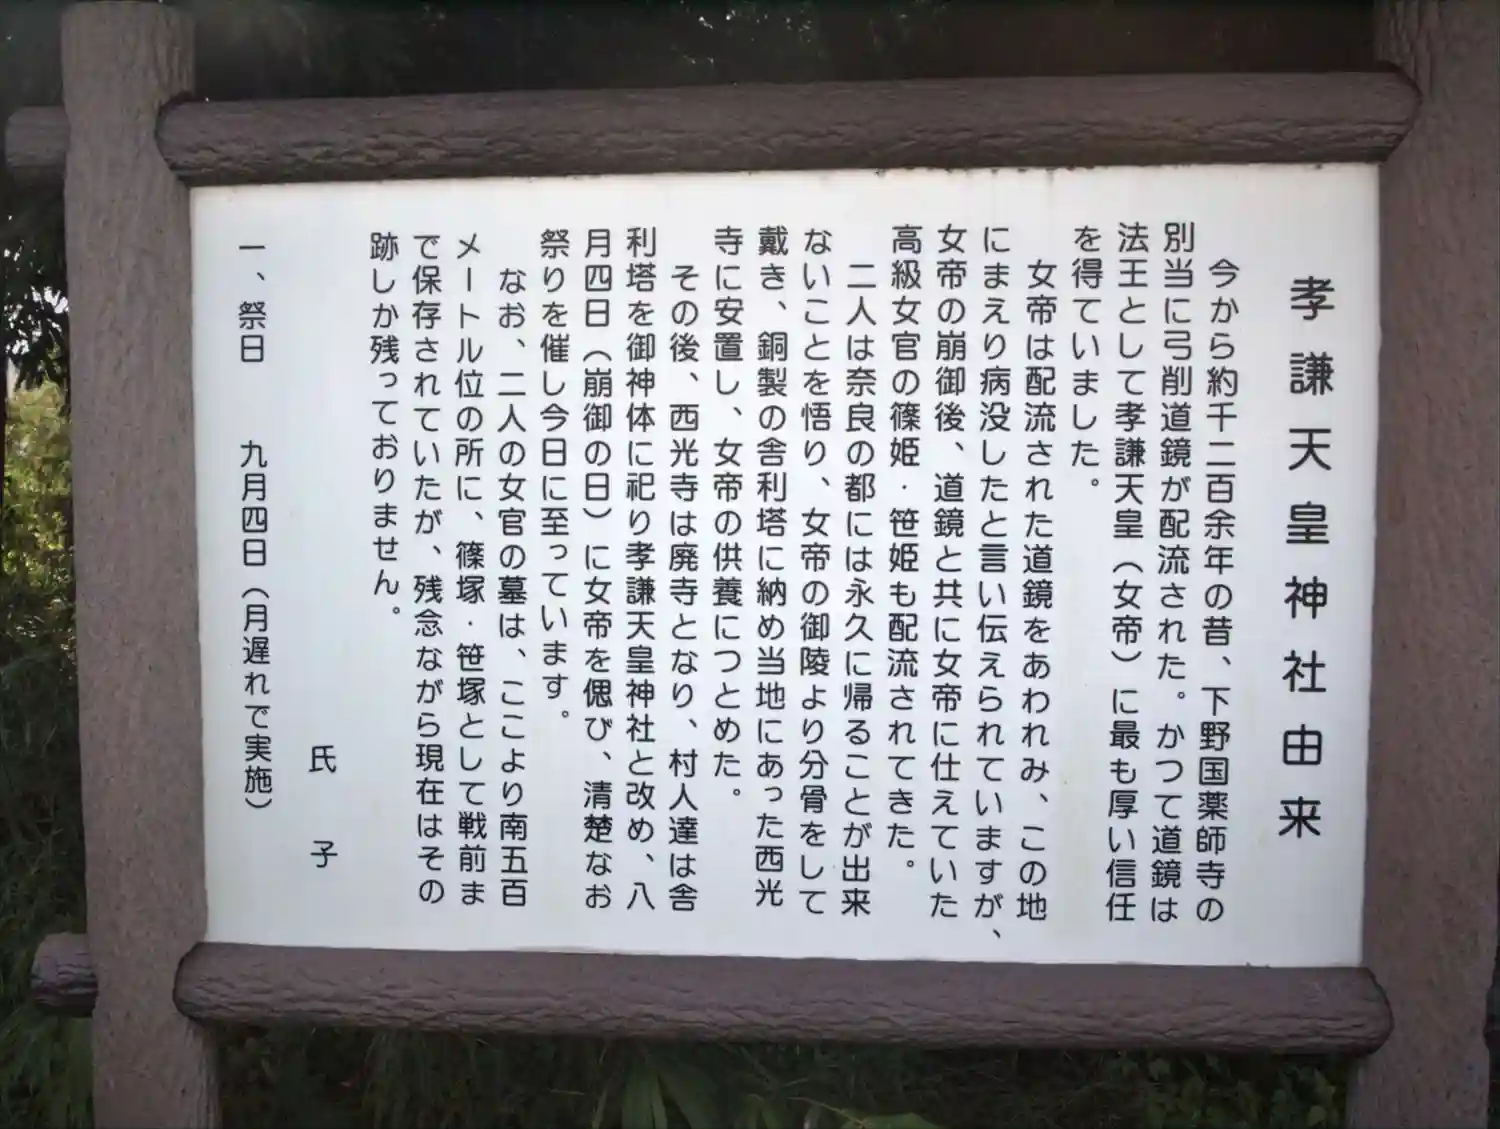 孝謙天皇神社由来
今から約千二百余年の昔、下野国薬師寺の
別当に弓削道鏡が配流された。かつて道鏡は
法王として孝謙天皇（女帝）に最も厚い信任
を得ていました。
女帝は配流された道鏡をあわれみ、この地
にまえり病没したと言い伝えられていますが、
女帝の崩御後、道鏡と共に女帝に仕えていた
高級女官の篠姫・笹姫も配流されてきた。
二人は奈良の都には永久に帰ることが出来
ないことを悟り、女帝の御陵より分骨をして
戴き、銅製の舎利塔に納め当地にあった西光
寺に安置し、女帝の供養につとめた。
その後、西光寺は廃寺となり、村人達は舎
利塔を御神体に祀り孝謙天皇神社と改め、八
月四日（崩御の日）に女帝を偲び、清楚なお
祭りを催し今日に至っています。
なお、二人の女官の墓は、ここより南五百
メートル位の所に、篠塚・笹塚として戦前ま
で保存されていたが、残念ながら現在はその
跡しか残っておりません。
氏子
一、祭日　九月四日（月遅れで実施）